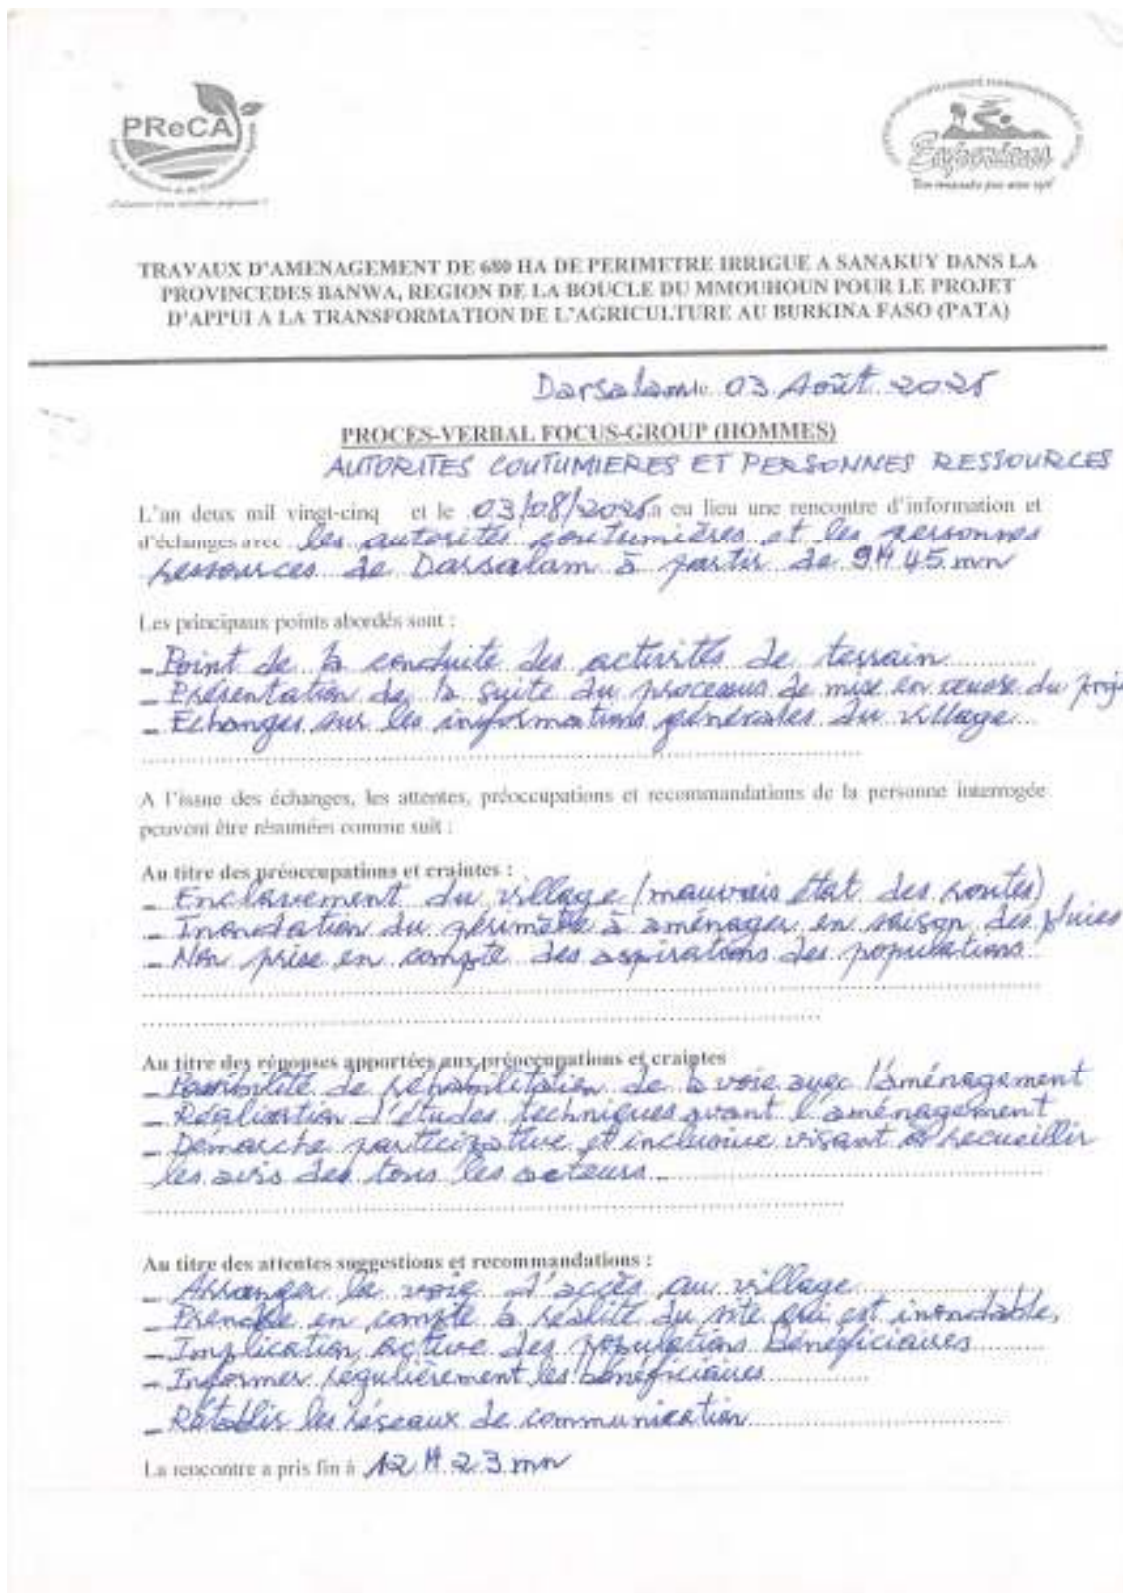 PReCA
TRAVAUX D'AMENAGEMENT DE 680 HA DE PERIMETRE IRRIGUE A SANAKUY DANS LA
PROVINCEDES BANWA, REGION DE LA BOUCLE DU MMOUHOUN POUR LE PROJET
D'APPUI A LA TRANSFORMATION DE L'AGRICULTURE AU BURKINA FASO (PATA)
Darsalam le 03 Août 2025
PROCES-VERBAL FOCUS-GROUP (HOMMES)
AUTORITES COUTUMIERES ET PERSONNES RESSOURCES
L'an deux mil vingt-cinq et le 03/08/2025 a eu lieu une rencontre d'information et
d'échanges avec les autorités coutumières et les personnes
ressources de Darsalam à partir de 9H 45 mn
Les principaux points abordés sont :
- Point de la conduite des activités de terrain
- Présentation de la suite du processus de mise en œuvre du proje
- Echanges sur les informations générales du village
A l'issue des échanges, les attentes, préoccupations et recommandations de la personne interrogée
peuvent être résumées comme suit :
Au titre des préoccupations et craintes :
- Enclavement du village (mauvais état des routes)
- Inondation du périmètre à aménager en saison des pluies
- Non prise en compte des aspirations des populations
Au titre des réponses apportées aux préoccupations et craintes
- Possibilité de réhabilitation de la voie avec l'aménagement
- Réalisation d'études techniques avant l'aménagement
- Démarche participative et inclusive visant à recueillir
les avis des tous les acteurs
Au titre des attentes suggestions et recommandations :
- Arranger la voie d'accès au village
- Prendre en compte la réalité du site qui est inondable,
- Implication active des populations bénéficiaires
- Informer regulièrement les bénéficiaires
- Rétablir les réseaux de communication
La rencontre a pris fin à 12 H 23 mn